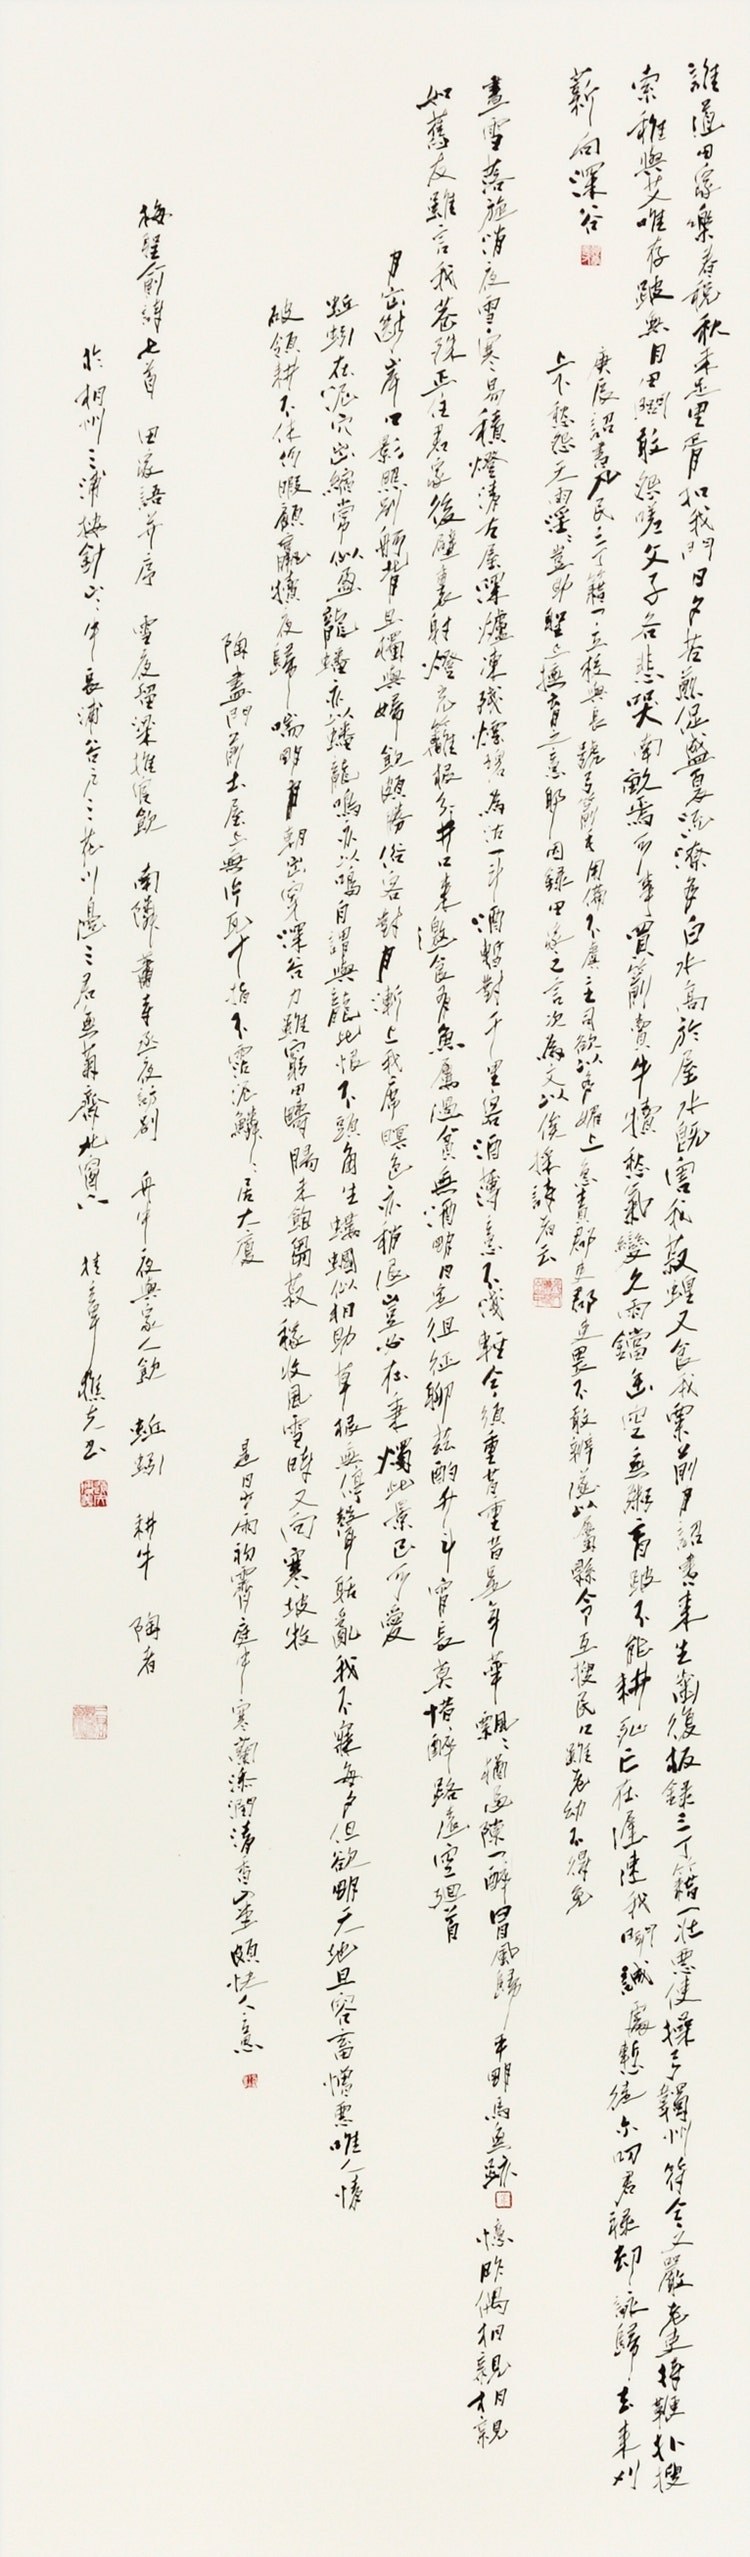 誰道田家樂春稅秋未足里胥扣我門日夕苦煎促盛夏流潦多白水高於屋水既害我菽蝗又食我粟前月詔書來生齒復板錄三丁籍一壯惡使操弓韣州符今又嚴老吏持鞭扑搜
索稚與艾唯存跛無目田閭敢怨嗟父子各悲哭南畝焉可事買箭賣牛犢愁氣變久雨鐺缶空無粥盲跛不能耕死亡在遲速我聞誠所慙徒尔叨君祿却詠歸去來刈
薪向深谷
庚辰詔書凡民三丁籍一立校與長號弓箭手用備不虞主司欲以多媚上急責郡吏郡吏畏不敢辨遂以屬縣令互搜民口雖老幼不得免
上下愁怨天雨淫淫豈助聖上撫育之意耶因錄田家之言次為文以俟採詩者云
晝雪落旋消夜雪寒易積燈清古屋深爐凍殘煙碧為沽一斗酒暫對千里客酒薄意不淺輕今須重昔重昔是年華飄飄猶過隙一醉冒風歸平明馬無跡 憶昨偶相親相見日親
如舊友雖言我巷殊正住君家後壁裏射燈光籬根分井口來邀食有魚屢過貧無酒明日定徂征聊茲酌升斗宵長莫惜醉路遠空迴首
月出斷岸口影照別舸背且獨與婦飲頗勝俗客對月漸上我席暝色亦稍退豈必在秉燭此景已可愛
蚯蚓在泥穴出縮常似盈龍蟠亦以蟠龍鳴亦以鳴自謂與龍比恨不頭角生螻蟈似相助草根無停聲聒亂我不寐每夕但欲明天地且容畜憎惡唯人情
破領耕不休何暇顧羸犢夜歸喘明月朝出穿深谷力雖窮田疇腸未飽芻菽稼收風雪時又向寒坡牧
陶盡門前土屋上無片瓦十指不霑泥鱗鱗居大廈
是日小雨初霽庭中寒蘭添潤清香入室頗快人意
梅聖俞詩七首 田家語并序 雪夜留梁推官飲 南隣蕭寺丞夜訪別 舟中夜與家人飲 蚯蚓 耕牛 陶者
於相州三浦按針山中長浦谷戶三花川邊三君無菊齋北窗下